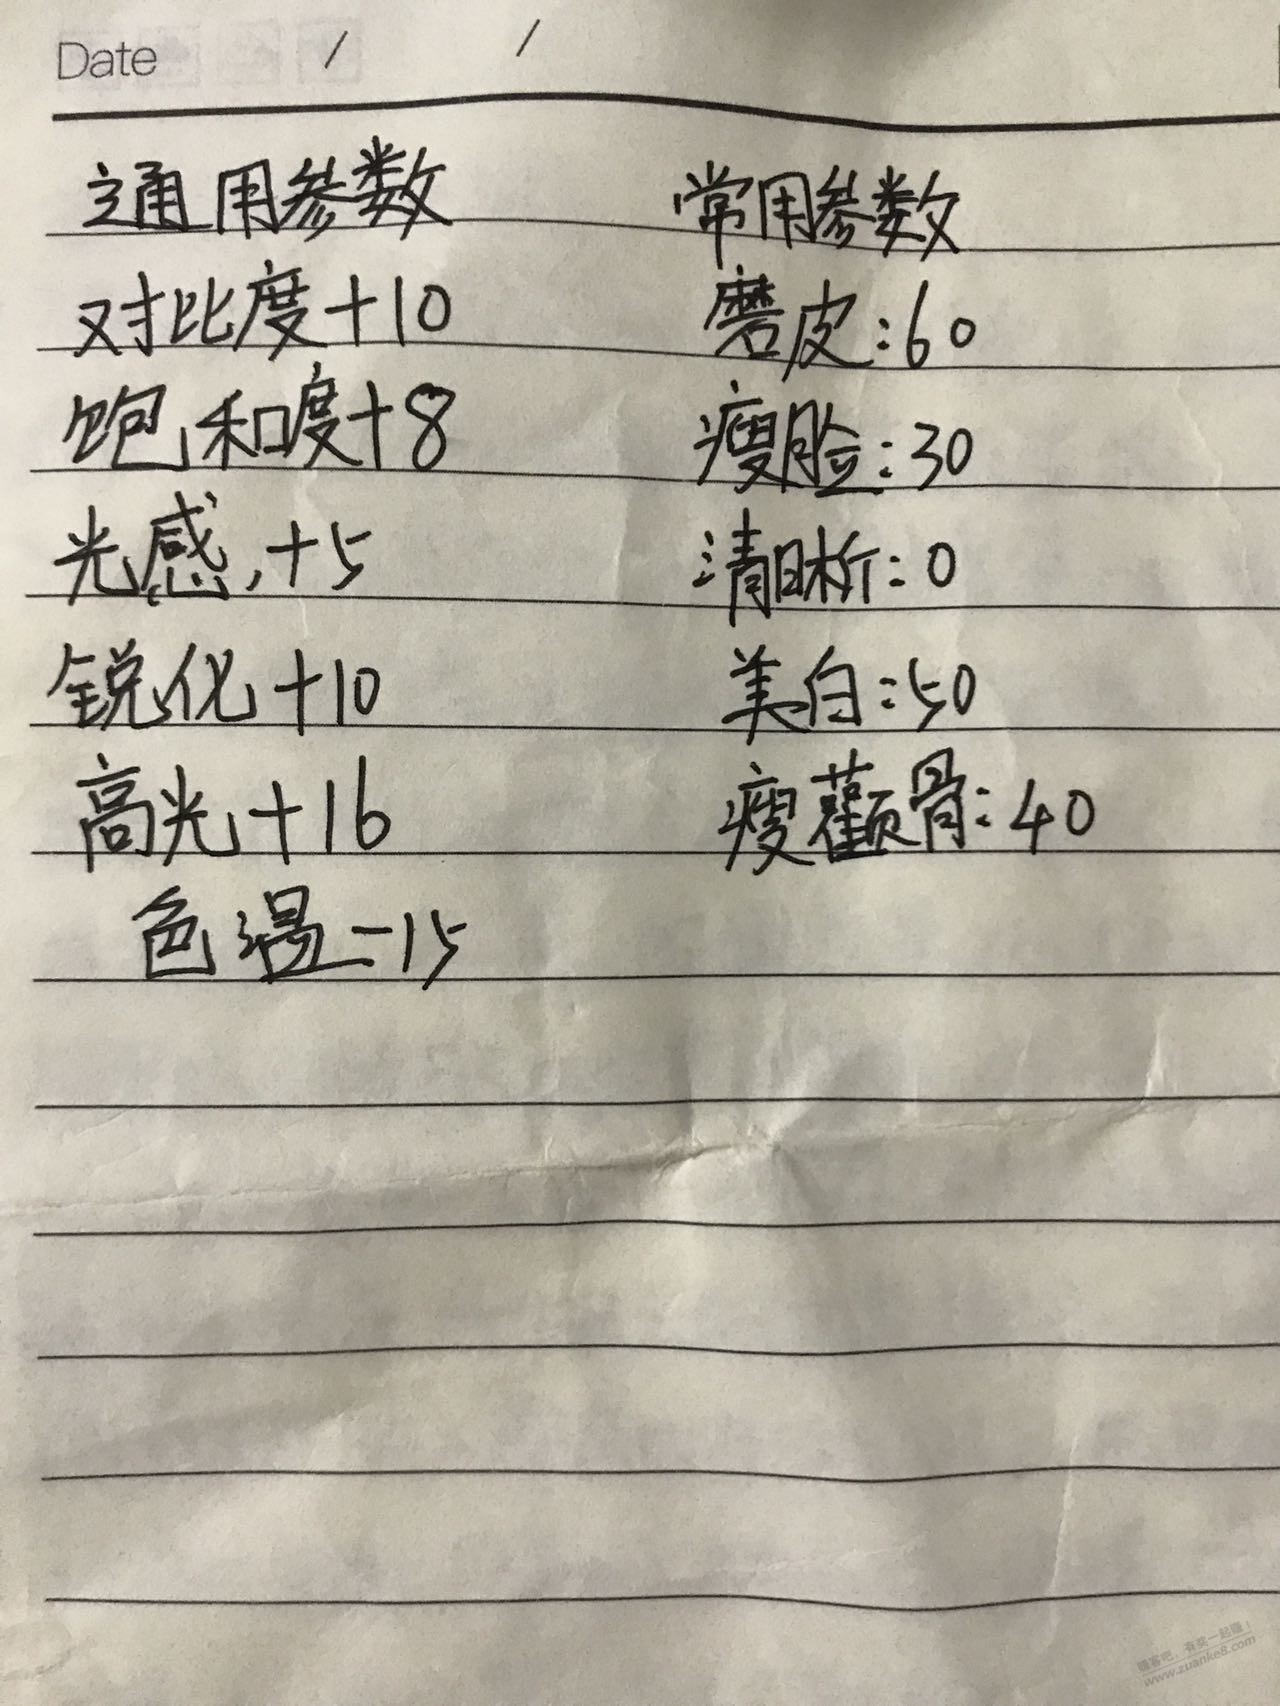 Date / /
通用参数
对比度+10
饱和度+8
光感,+5
锐化+10
高光+16
色温-15
常用参数
磨皮:60
瘦脸:30
清晰:0
美白:50
瘦颧骨:40
赚客吧,有奖一起赚!
www.zuanke8.com